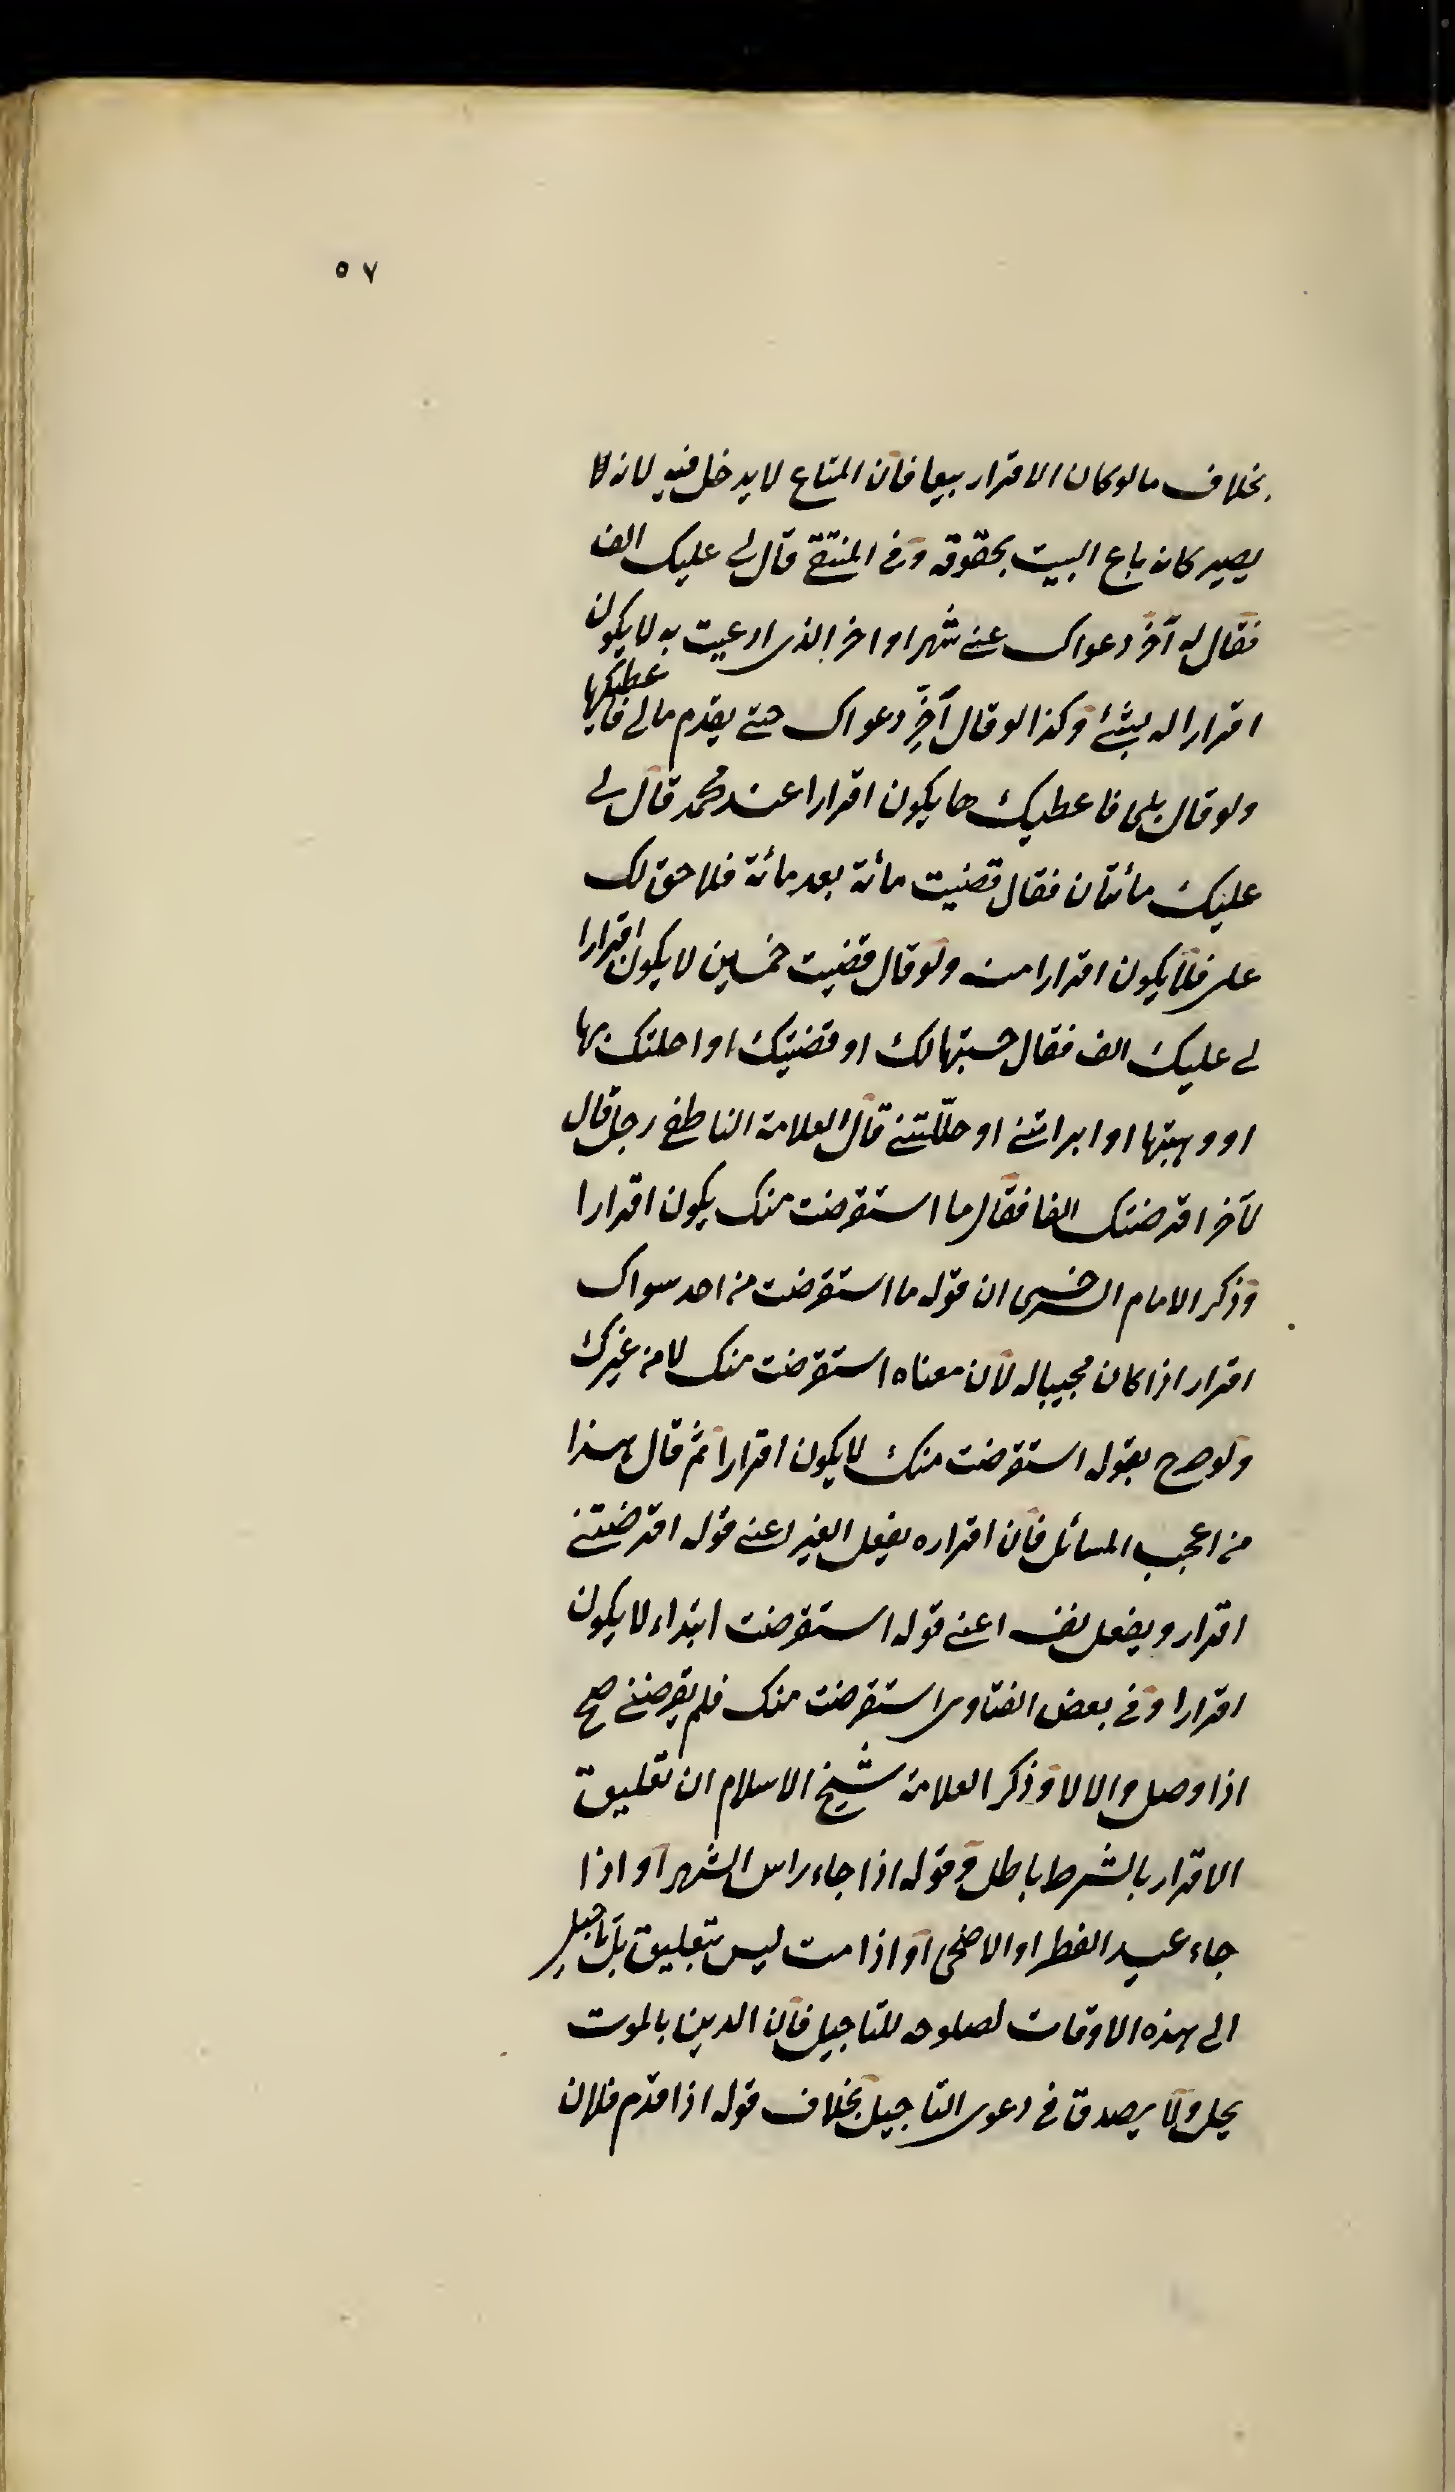 ٥٧
بخلاف ما لو كان الاقرار بيعا فان المتاع لا يدخل فيه لانه لا
يصير كانه باع البيت بحقوقه وفى المنتقى قال لى عليك الف
فقال له آخر دعواك عنى شهرا او اخر الذى ادعيت به لا يكون
اقرارا له بشئ وكذا لو قال آخِر دعواك حتى يقدم مالى فاعطيكها
ولو قال بلى فاعطيك ها يكون اقرارا عند محمد قال لى
عليك مائتان فقال قضيت مائة بعد مائة فلا حق لك
على فلا يكون اقرارا منه ولو قال قضيت خمسين لا يكون اقرارا
لى عليك الف فقال حسبتها لك او قضيتك او احلتك بها
او وهبتها او ابراتنى او حلّلتنى قال العلامة الناطفى رجل قال
لآخر اقرضتك الفا فقال ما استقرضت منك يكون اقرارا
وذكر الامام السرخسى ان قوله ما استقرضت من احد سواك
اقرار اذا كان مجيبا له لان معناه استقرضت منك لا من غيرك
ولو صرح بقوله استقرضت منك لا يكون اقرارا ثم قال هذا
من اعجب المسائل فان اقراره بفعل الغير اعنى قوله اقرضتنى
اقرار وبفعل نفسه اعنى قوله استقرضت ابتداء لا يكون
اقرارا وفى بعض الفتاوى استقرضت منك فلم يقرضنى صح
اذا وصل والا لا وذكر العلامة شيخ الاسلام ان تعليق
الاقرار بالشرط باطل وقوله اذا جاء راس الشهر او اذا
جاء عيد الفطر او الاضحى او اذا مت ليس بتعليق بل تاجيل
الى هذه الاوقات لصلوحه للتاجيل فان الدين بالموت
يحل ولا يصدق فى دعوى التاجيل بخلاف قوله اذا قدم فلان